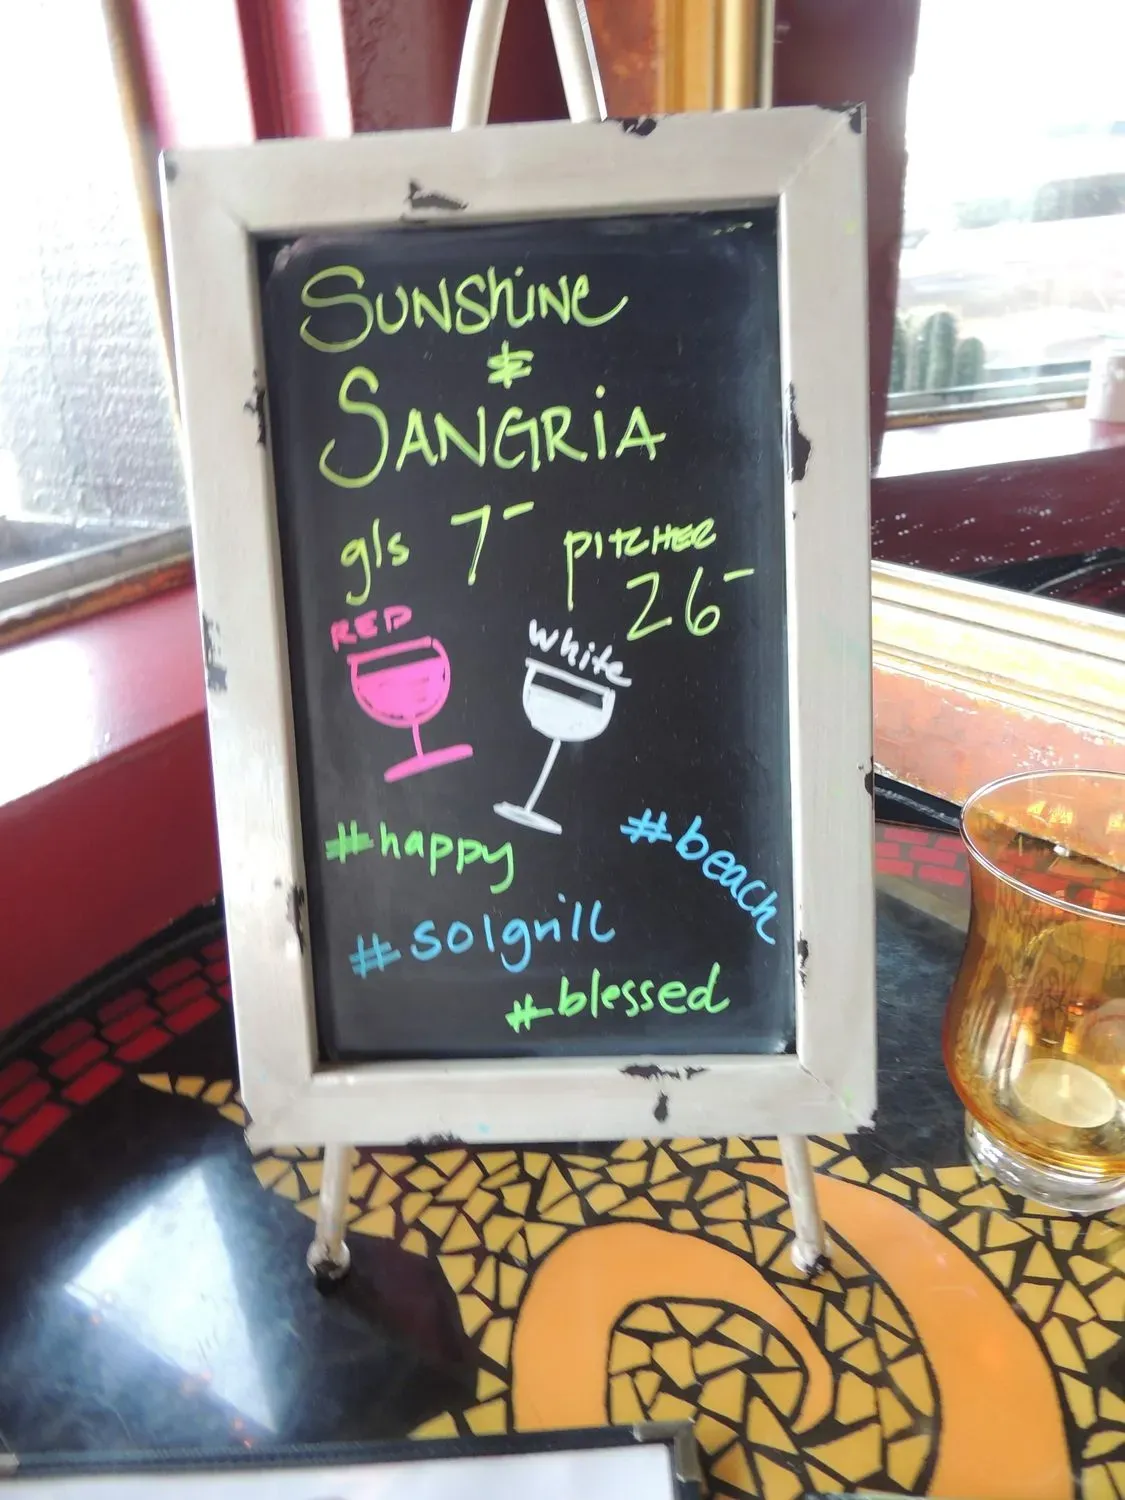 Sunshine
&
SANGRiA
gls 7- PITCHER
26-
RED
White
#happy
#beach
#solgrill
#blessed